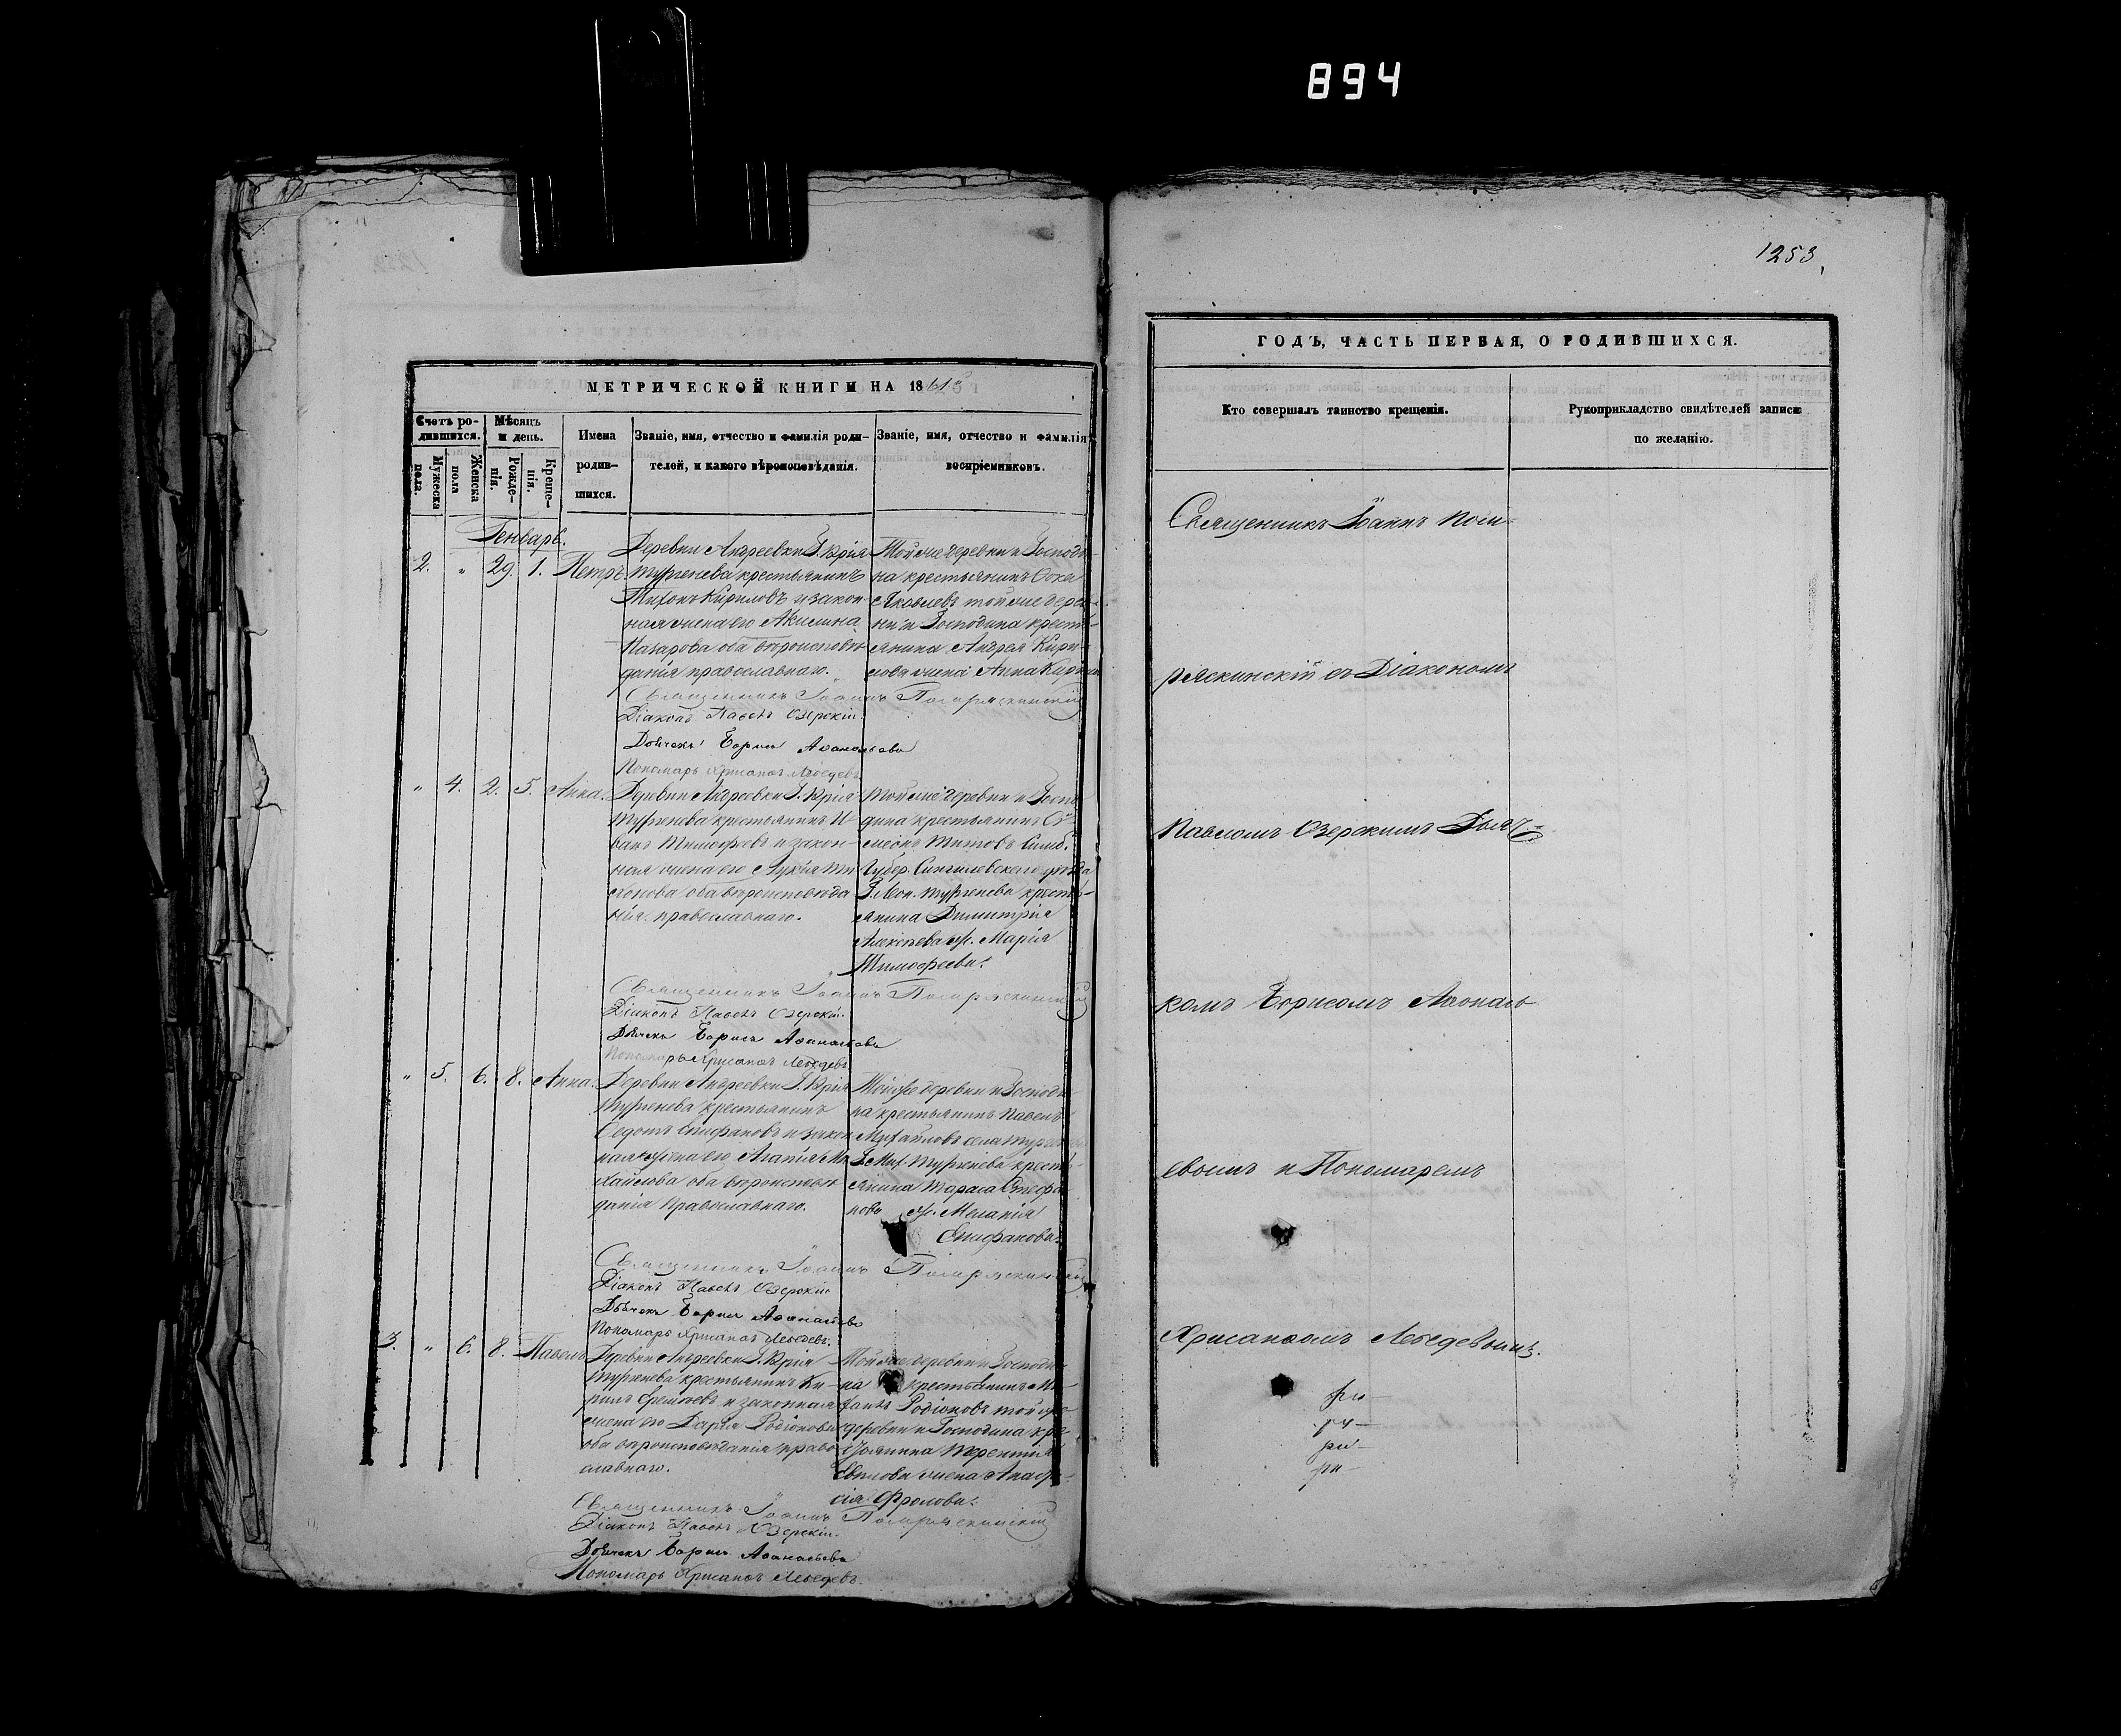 894
1253,
МЕТРИЧЕСКОЙ КНИГИ НА 1861й
Счетъ ро-
дившихся.
Мужеска
пола.
Женска
пола
Мѣсяцъ
и день.
Рожде-
нія.
Креще-
нія.
Имена
родив-
шихся.
Званіе, имя, отчество и фамилія роди-
телей, и какого вѣроисповѣданія.
Званіе, имя, отчество и фамилія
воспріемниковъ.
Генварь.
2. " 29. 1. Петръ.
Деревни Андреевки Г. Юрія
Тургенева крестьянинъ
Тихонъ Кириловъ и закон-
ная жена его Акилина
Назарова оба вѣроисповѣ-
данія православнаго.
Той же деревни и Господи-
на крестьянинъ
Яковлевъ той же дерев-
ни и Господина кресть-
янина Андрея Кири-
лова жена Анна
Священникъ Іоаннъ
Діаконъ Павелъ Озерскій.
Дьячекъ Борисъ Аѳанасьевъ
Пономарь Хрисанѳъ Лебедевъ
" 4. 2. 5. Анна.
Деревни Андреевки Г. Юрія
Тургенева крестьянинъ И-
ванъ Тимофеевъ и закон-
ная жена его Лукія Ти-
хонова оба вѣроисповѣда
нія православнаго.
Той же деревни и Госпо
дина крестьянинъ Си-
меонъ Титовъ Симб.
Губер. Сингилевскаго уѣзда
Г. Тургенева кресть-
янина Димитрія
Алексѣева ж. Марія
Тимофеева.
Священникъ Іоаннъ
Діаконъ Павелъ Озерскій.
Дьячекъ Борисъ Аѳанасьевъ
Пономарь Хрисанѳъ Лебедевъ
" 5. 6. 8. Анна.
Деревни Андреевки Г. Юрія
Тургенева крестьянинъ
Ѳедотъ Епифановъ и закон
ная жена его Агапія Ми
хайлова оба вѣроисповѣ
данія православнаго.
Той же деревни и Господи
на крестьянинъ Павелъ
Михайловъ села
Г. Мих. Тургенева кресть-
янина Тараса
ж. Меланія
Епифанова.
Священникъ Іоаннъ
Діаконъ Павелъ Озерскій
Дьячекъ Борисъ Аѳанасьевъ
Пономарь Хрисанѳъ Лебедевъ.
3. " 6. 8. Павелъ
Деревни Андреевки Г. Юрія
Тургенева крестьянинъ Ки-
рилъ Еремѣевъ и законная
жена его Дарія Родіонова
оба вѣроисповѣданія право
славнаго.
Той же деревни и Господи-
на крестьянинъ
Родіоновъ той же
деревни и Господина кре
стьянина Терентія
жена Анаста-
сія Фролова.
Священникъ Іоаннъ
Діаконъ Павелъ Озерскій.
Дьячекъ Борисъ Аѳанасьевъ
Пономарь Хрисанѳъ Лебедевъ.
ГОДЪ, ЧАСТЬ ПЕРВАЯ, О РОДИВШИХСЯ.
Кто совершалъ таинство крещенія.
Рукоприкладство свидѣтелей записи
по желанію.
Священникъ Іоаннъ
съ Діакономъ
Павломъ Озерскимъ Дьяч-
комъ Борисомъ Аѳанась
евымъ и Пономаремъ
Хрисанѳомъ Лебедевымъ.